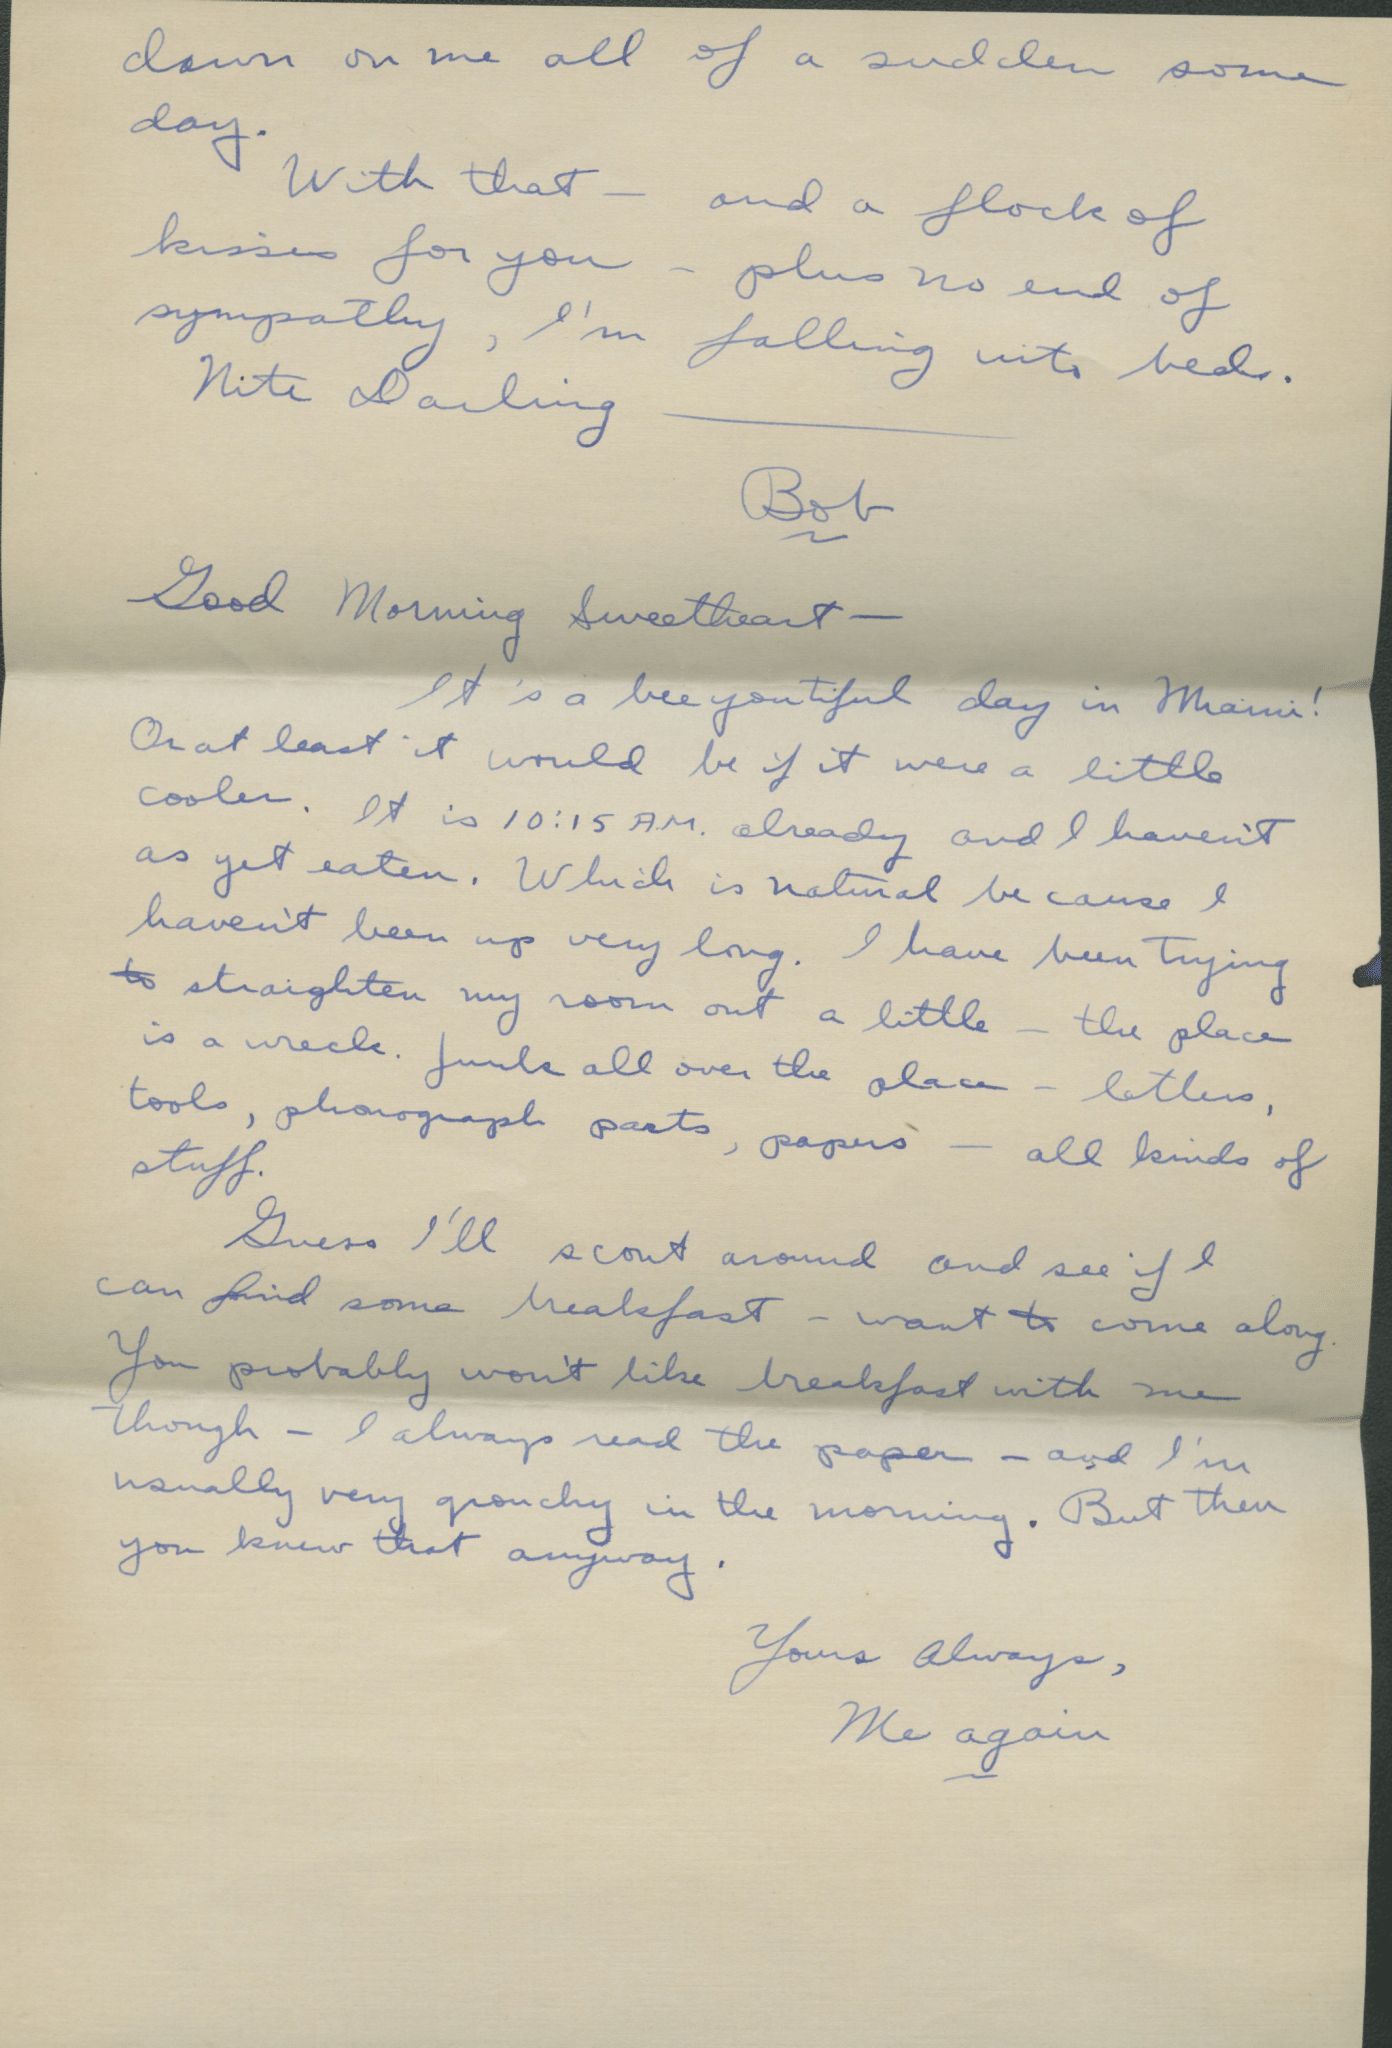 dawn on me all of a sudden some
day.
With that — and a flock of
kisses for you — plus no end of
sympathy, I'm falling into bed.
Nite Darling ———
Bob
Good Morning Sweetheart —
It's a beeyoutiful day in Miami!
Or at least it would be if it were a little
cooler. It is 10:15 A.M. already and I haven't
as yet eaten. Which is natural because I
haven't been up very long. I have been trying
to straighten my room out a little — the place
is a wreck. Junk all over the place — letters,
tools, phonograph parts, papers — all kinds of
stuff.
Guess I'll scout around and see if I
can find some breakfast — want to come along.
You probably won't like breakfast with me
though — I always read the paper — and I'm
usually very grouchy in the morning. But then
you knew that anyway.
Yours Always,
Me again